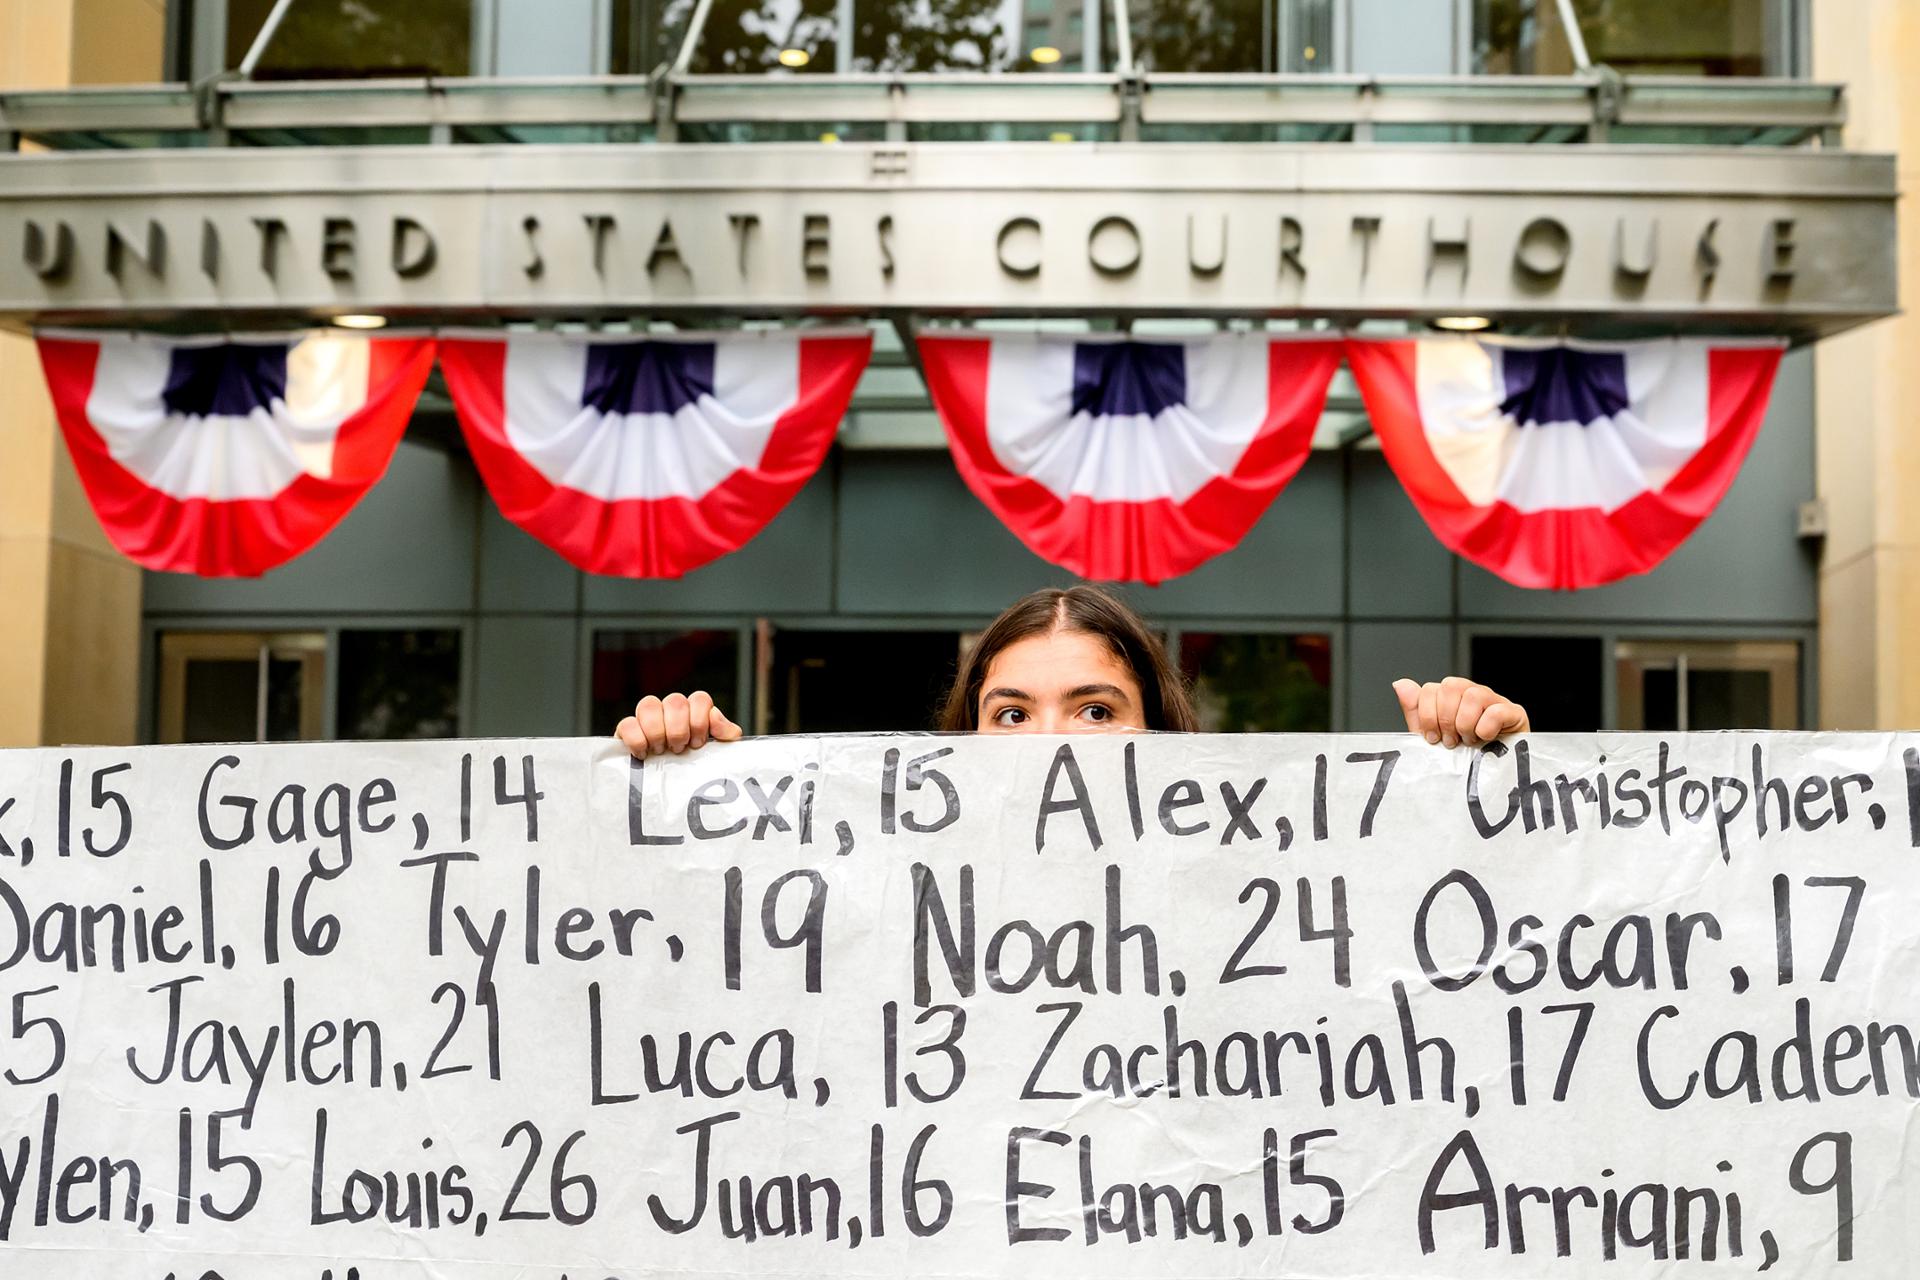 UNITED STATES COURTHOUSE
, 15 Gage, 14 Lexi, 15 Alex, 17 Christopher, 1
Daniel, 16 Tyler, 19 Noah, 24 Oscar, 17
5 Jaylen, 21 Luca, 13 Zachariah, 17 Caden
ylen, 15 Louis, 26 Juan, 16 Elana, 15 Arriani, 9